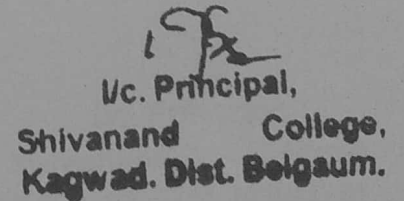 I/c. Principal,
Shivanand College,
Kagwad. Dist. Belgaum.